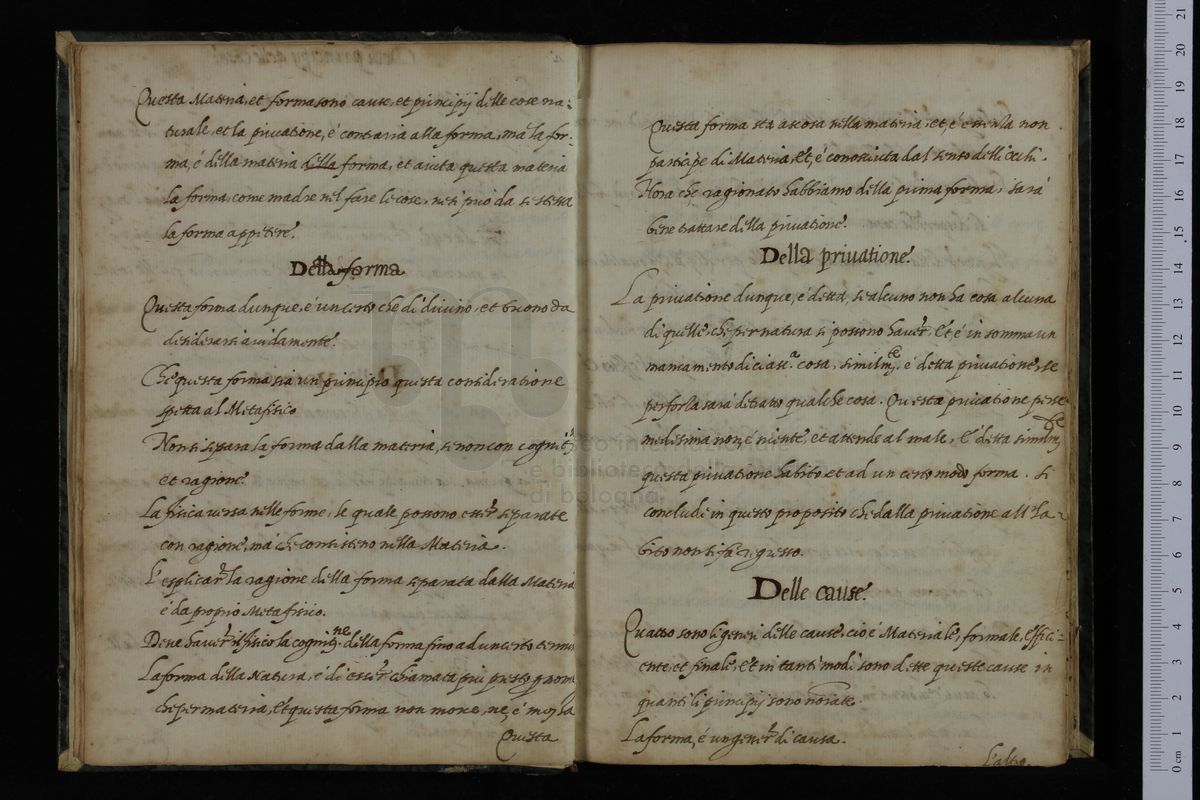 Questa Materia, et forma sono cause, et principij delle cose na:
turale, et la privatione, é contraria alla forma, má la for:
ma, é della materia della forma, et aiuta questa materia
la forma, come madre nel fare le cose, ne si può da se stessa
la forma appetere.
Della forma
Questa forma dunque, é un certo che di divino, et buono da
desiderarsi avidamente.
Che questa forma sia un principio questa consideratione
spetta al Metafisico
Non si separa la forma dalla materia, se non con cognit.
et ragione.
La fisica versa nelle forme, le quale possono esser separate
con ragione, má che consisteno nella Materia.
L'esplicar la ragione della forma separata dalla Materia
é da proprio Metafisico.
Deve haver il fisico la cognit.ne della forma fino ad un certo
La forma della Natura, é di esser chiamata più presto
che per materia, Et questa forma non move, ne, é mossa
Questa
Questa forma sta ascosa nella materia, et, é non
participe di Materia, Et, é conosciuta dal senso delli Occhi.
Hora che ragionato habbiamo della prima forma, sará
bene trattare della privatione.
Della privatione.
La privatione dunque, é detta, se alcuno non ha cosa alcuna
di quelle, che per natura si possono haver, Et é in somma un
mancamento di ciasc.a cosa, similm.te é detta privatione, se
per forza sará detratto qualche cosa. Questa privatione per se
medesima non, é niente, et attende al male. E' detta similm.te
questa privatione habito et ad un certo modo forma. Si
conclude in questo proposito che dalla privatione all' ha:
bito non si fa regresso.
Delle cause.
Quattro sono li generi delle cause, cioé Materiale, formale, Effici:
ente, et finale, Et in tanti modi sono dette queste cause in
quanti li principij sono nominate.
La forma, é un gener di causa.
L'altro
museo internazionale
e biblioteca della musica
di bologna
0 cm 1 2 3 4 5 6 7 8 9 10 11 12 13 14 15 16 17 18 19 20 21